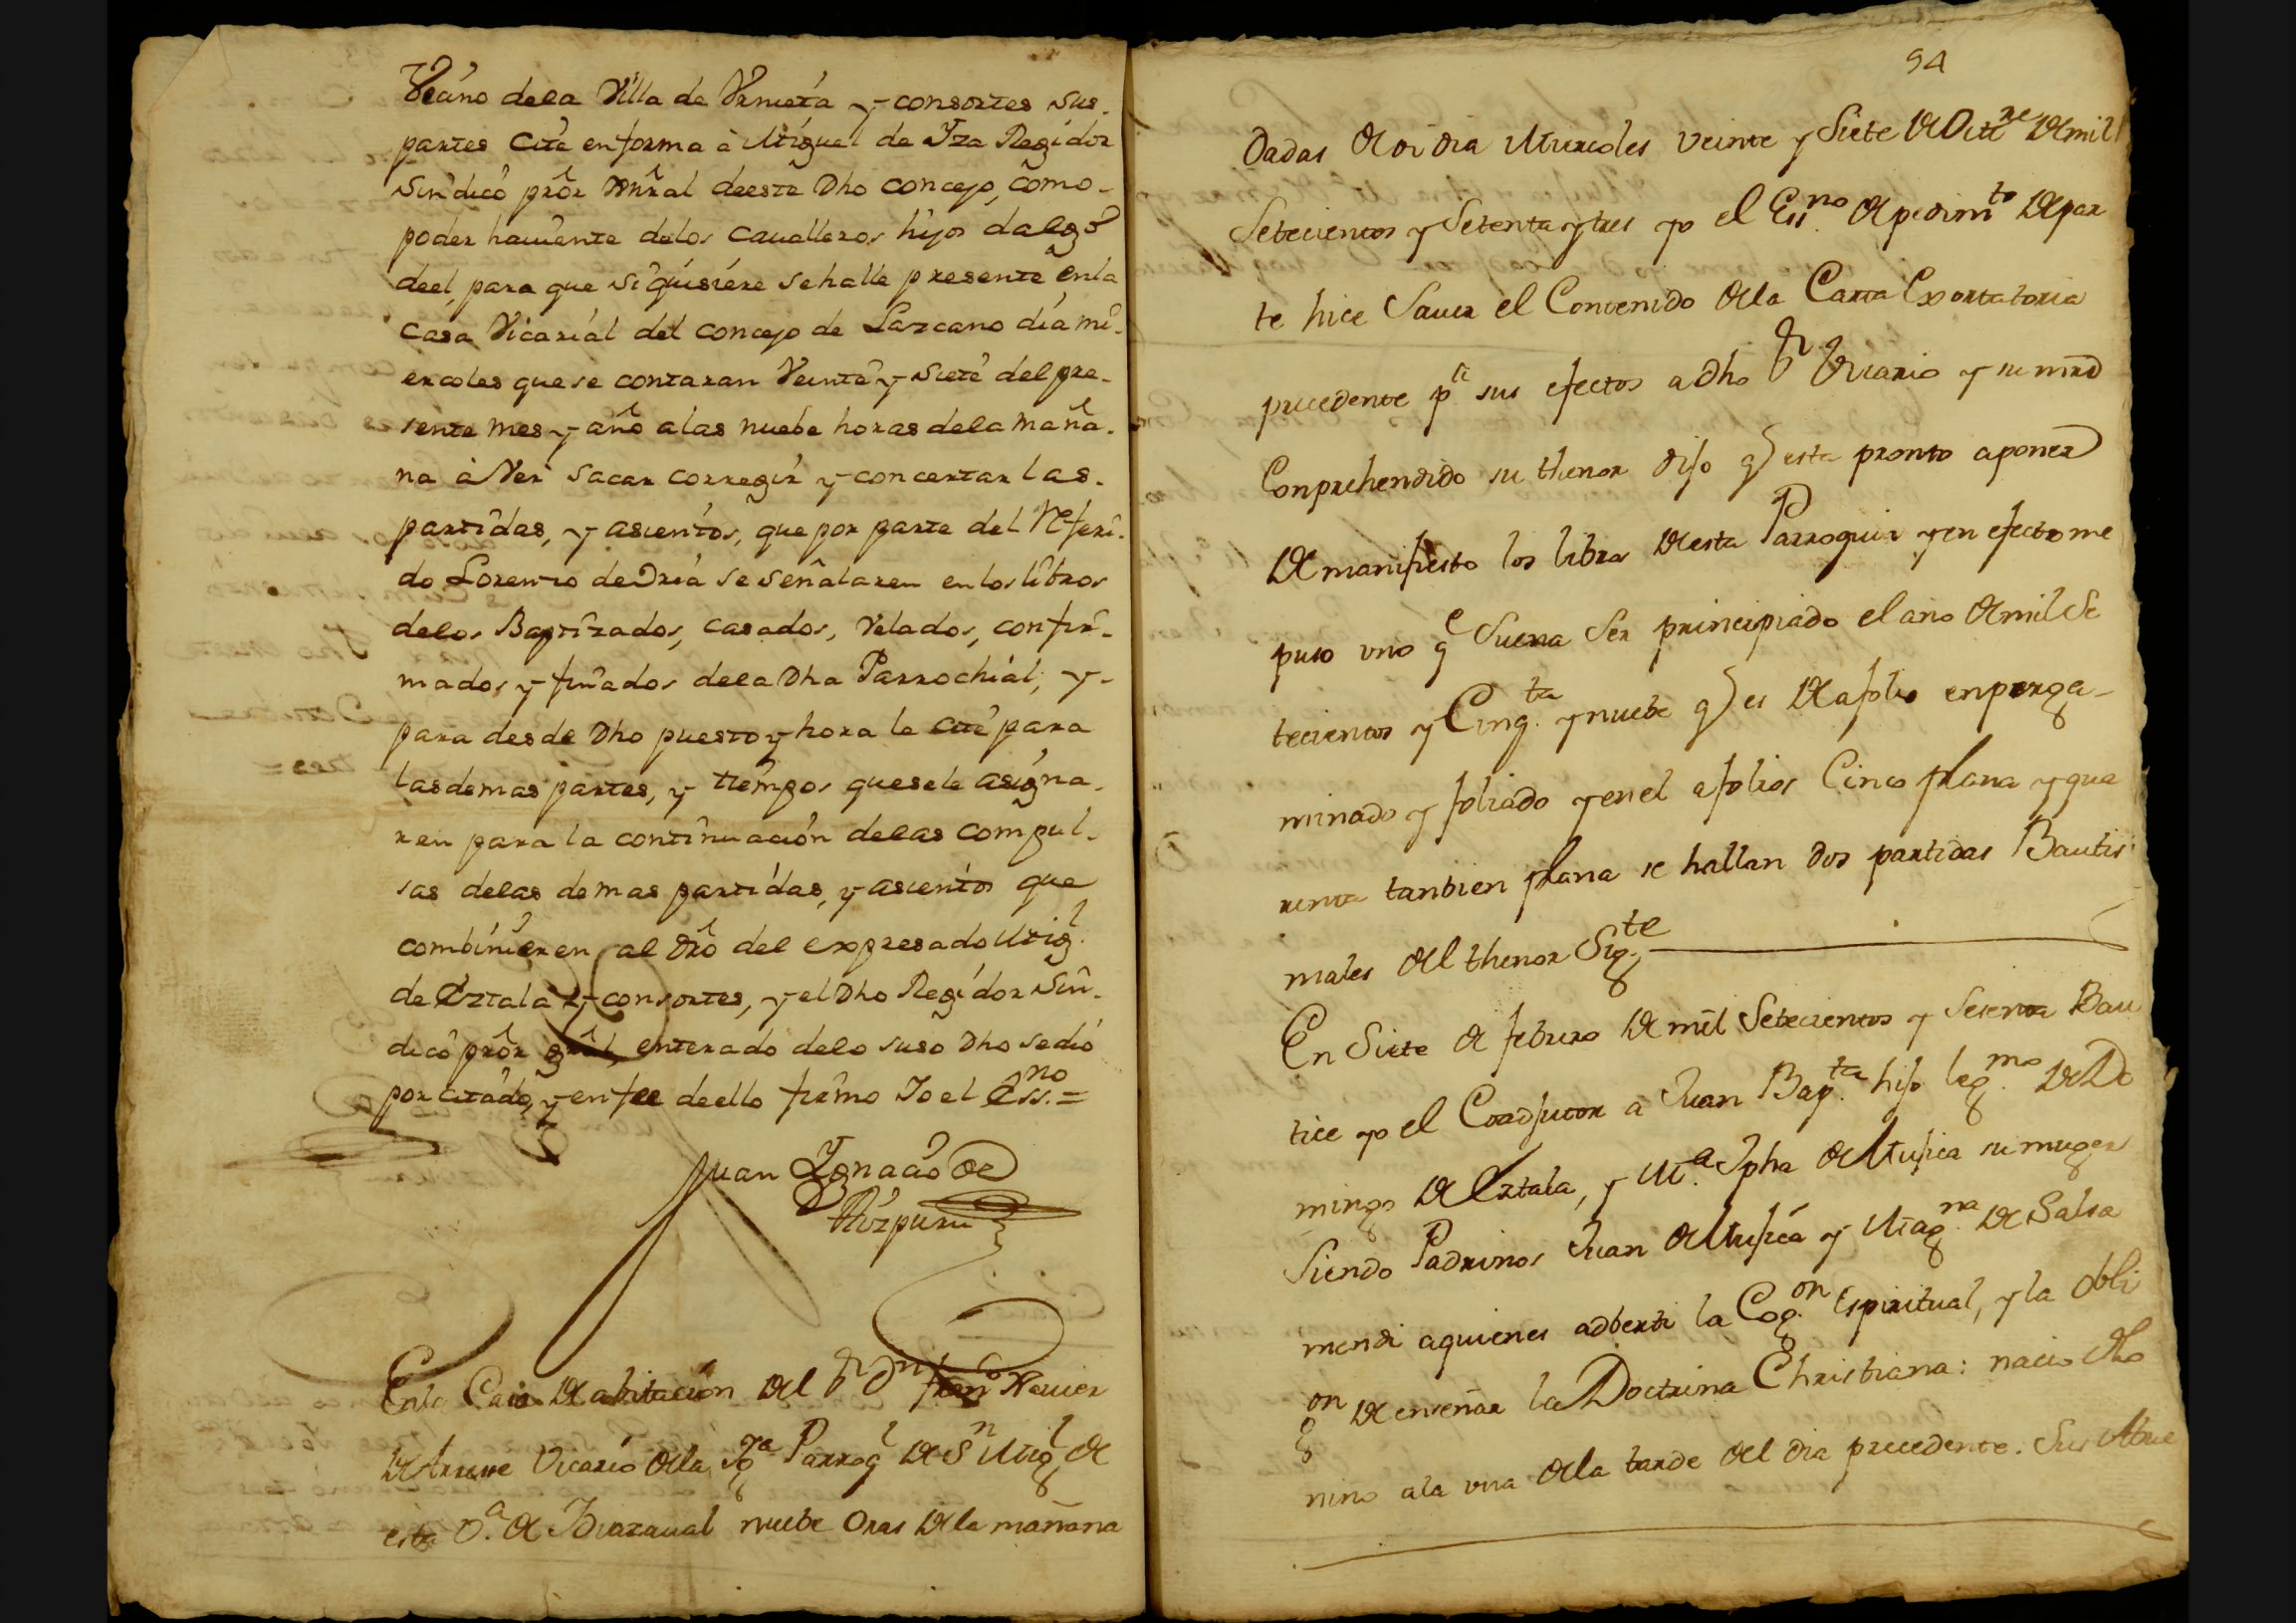 Vecino dela Villa de Urnieta y consortes sus
partes cité en forma à Miguel de Yza Regidor
Sindico prõr gñral deeste Dho concejo, como
poder hauiente delos caualleros hijos dalgo
deel, para que si quisiere se halle presente enla
casa Vicarial del concejo de Lazcano dia mi-
ercoles que se contaran Veinte y siete del pre-
sente mes y año alas nuebe horas dela maña-
na à Ver sacar corregir y concertar las
partidas, y asientos, que por parte del Referi-
do Lorenzo de Oria se señalaren en los libros
delos Baptizados, casados, Velados, confir-
mados y finados dela Dha Parrochial, y
para desde Dho puesto y hora le cité para
las demas partes, y tiempos que sele asigna-
ren para la continuación delas compul-
sas delas demas partidas, y asientos que
combinieren al dro del expresado Migl.
de Eztala y consortes, y el Dho Regidor Sin-
dico prõr grãl, enterado delo suso Dho se dió
por citado, y en fee deello firmo Yo el Essno. =
Juan Ygnacio de
Aozpuru
Enla Casa de abitacion del Sr Dn Franco Xauier
de Arrue Vicario dela Yga Parroql de Sn Migl de
esta Va. de Ydiazaual nuebe oras dela mañana
94
dadas de oi dia Miercoles veinte y Siete de Octre de mil
Setecientos y Setenta y tres yo el Essno. de pedimto de par
te hice Sauer el Contenido dela Carta Exortatoria
precedente pa sus efectos a dho Sr Vicario y su mrd
Conprehendido su thenor dijo q esta pronto a poner
de manifiesto los libros de esta Parroquia y en efecto me
puso uno qe Suena Ser principiado el año de mil Se
tecientos y Cinqta. y nuebe q es de a folio en perga-
minado y foliado y en el a folios Cinco plana y qua
renta tanbien plana se hallan dos partidas Bautis
males del thenor Sigte.
En Siete de febrero de mil Setecientos y Sesenta Bau
tice yo el Coadjutor a Juan Bapta. hijo legmo. de Do
mingo de Eztala, y Ma. Jpha de Mujica su muger
Siendo Padrinos Juan de Mujica y Magna de Salsa
mendi a quienes adberti la Cogon. Espiritual, y la obli
gon de enseñar la Doctrina Christiana: nacio dho
nino ala una dela tarde del dia precedente. Sus Abue